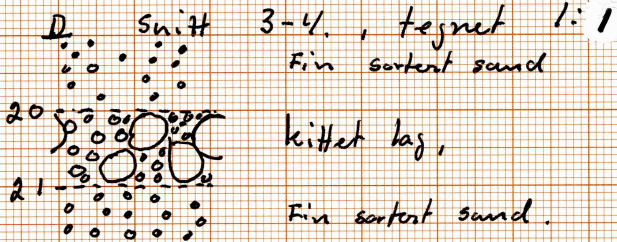 D snitt 3-4. , tegnet 1:1
Fin sortert sand
20
kittet lag,
21
Fin sortert sand.